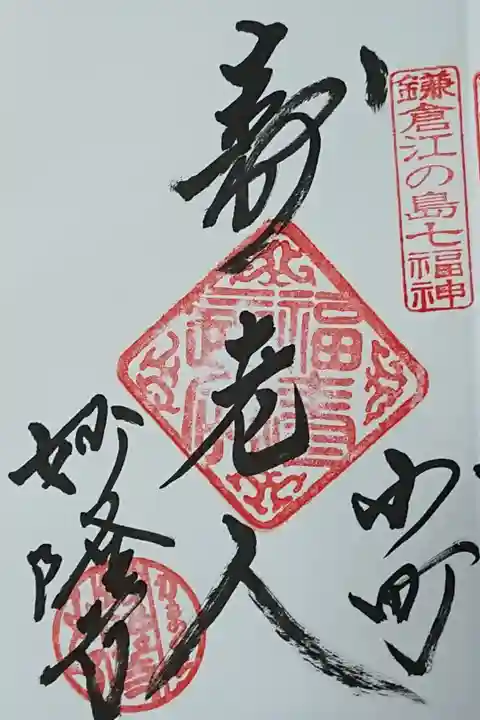 鎌倉江の島七福神
小町
寿老人
妙隆寺